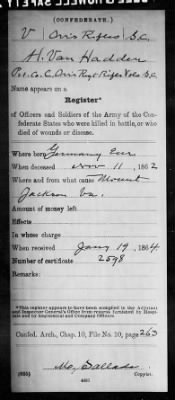 (CONFEDERATE.)
V Orr's Rifles S.C.
H. Van Hadden
Pvt. Co. C, Orr's Regt Rifles Vols S.C.
Name appears on a
Register*
of Officers and Soldiers of the Army of the Con-
federate States who were killed in battle, or who
died of wounds or disease.
Where born Germany
When deceased Nov 11, 1862
Where and from what cause Mount
Jackson Va.
Amount of money left
Effects
In whose charge
When received Jany 19, 1864
Number of certificate 2598
Remarks:
*This register appears to have been compiled in the Adjutant
and Inspector General's Office from returns furnished by Hospi-
tals and by Regimental and Company Officers.
Confed. Arch., Chap. 10, File No. 10, page 263
Copyist.